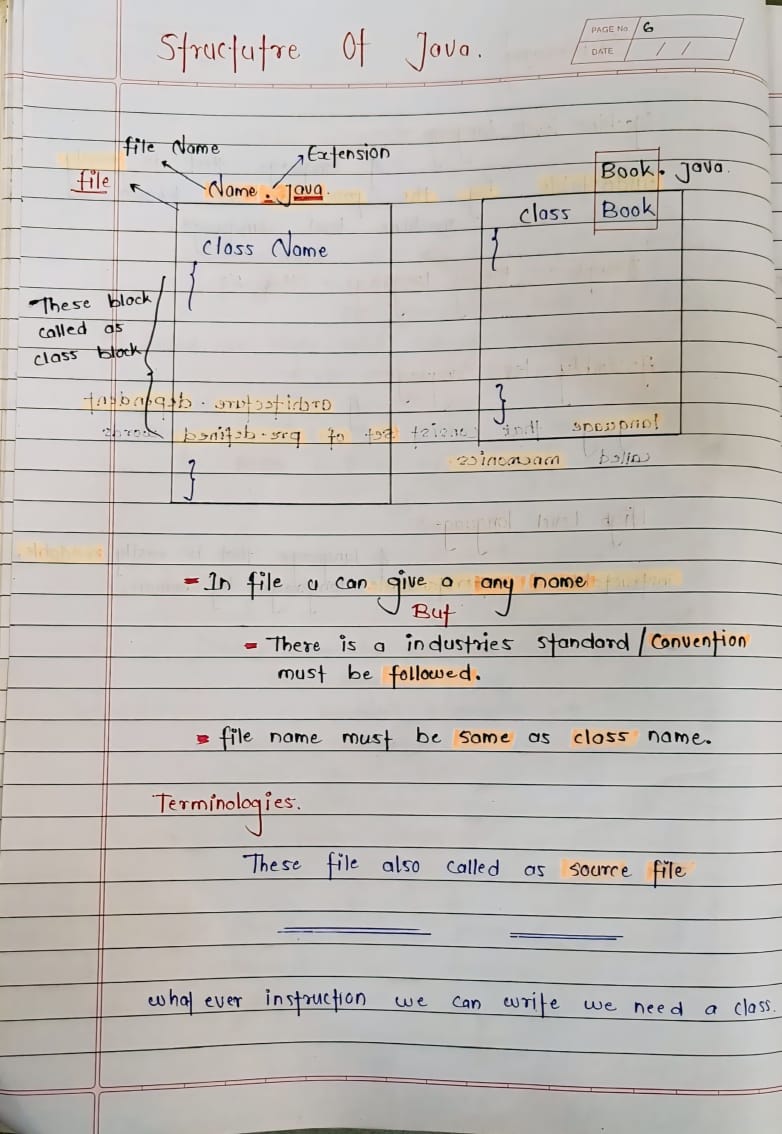 PAGE No. 6
DATE / /
Structutre Of Java.
file Name
Extension
file
Name . java.
Book . java.
class Name
{
class Book
{
These block
called as
class block
}
}
= In file u can give a any name
But
= There is a industries standard / Convention
must be followed.
= file name must be same as class name.
Terminologies.
These file also called as source file
what ever instruction we can write we need a class.